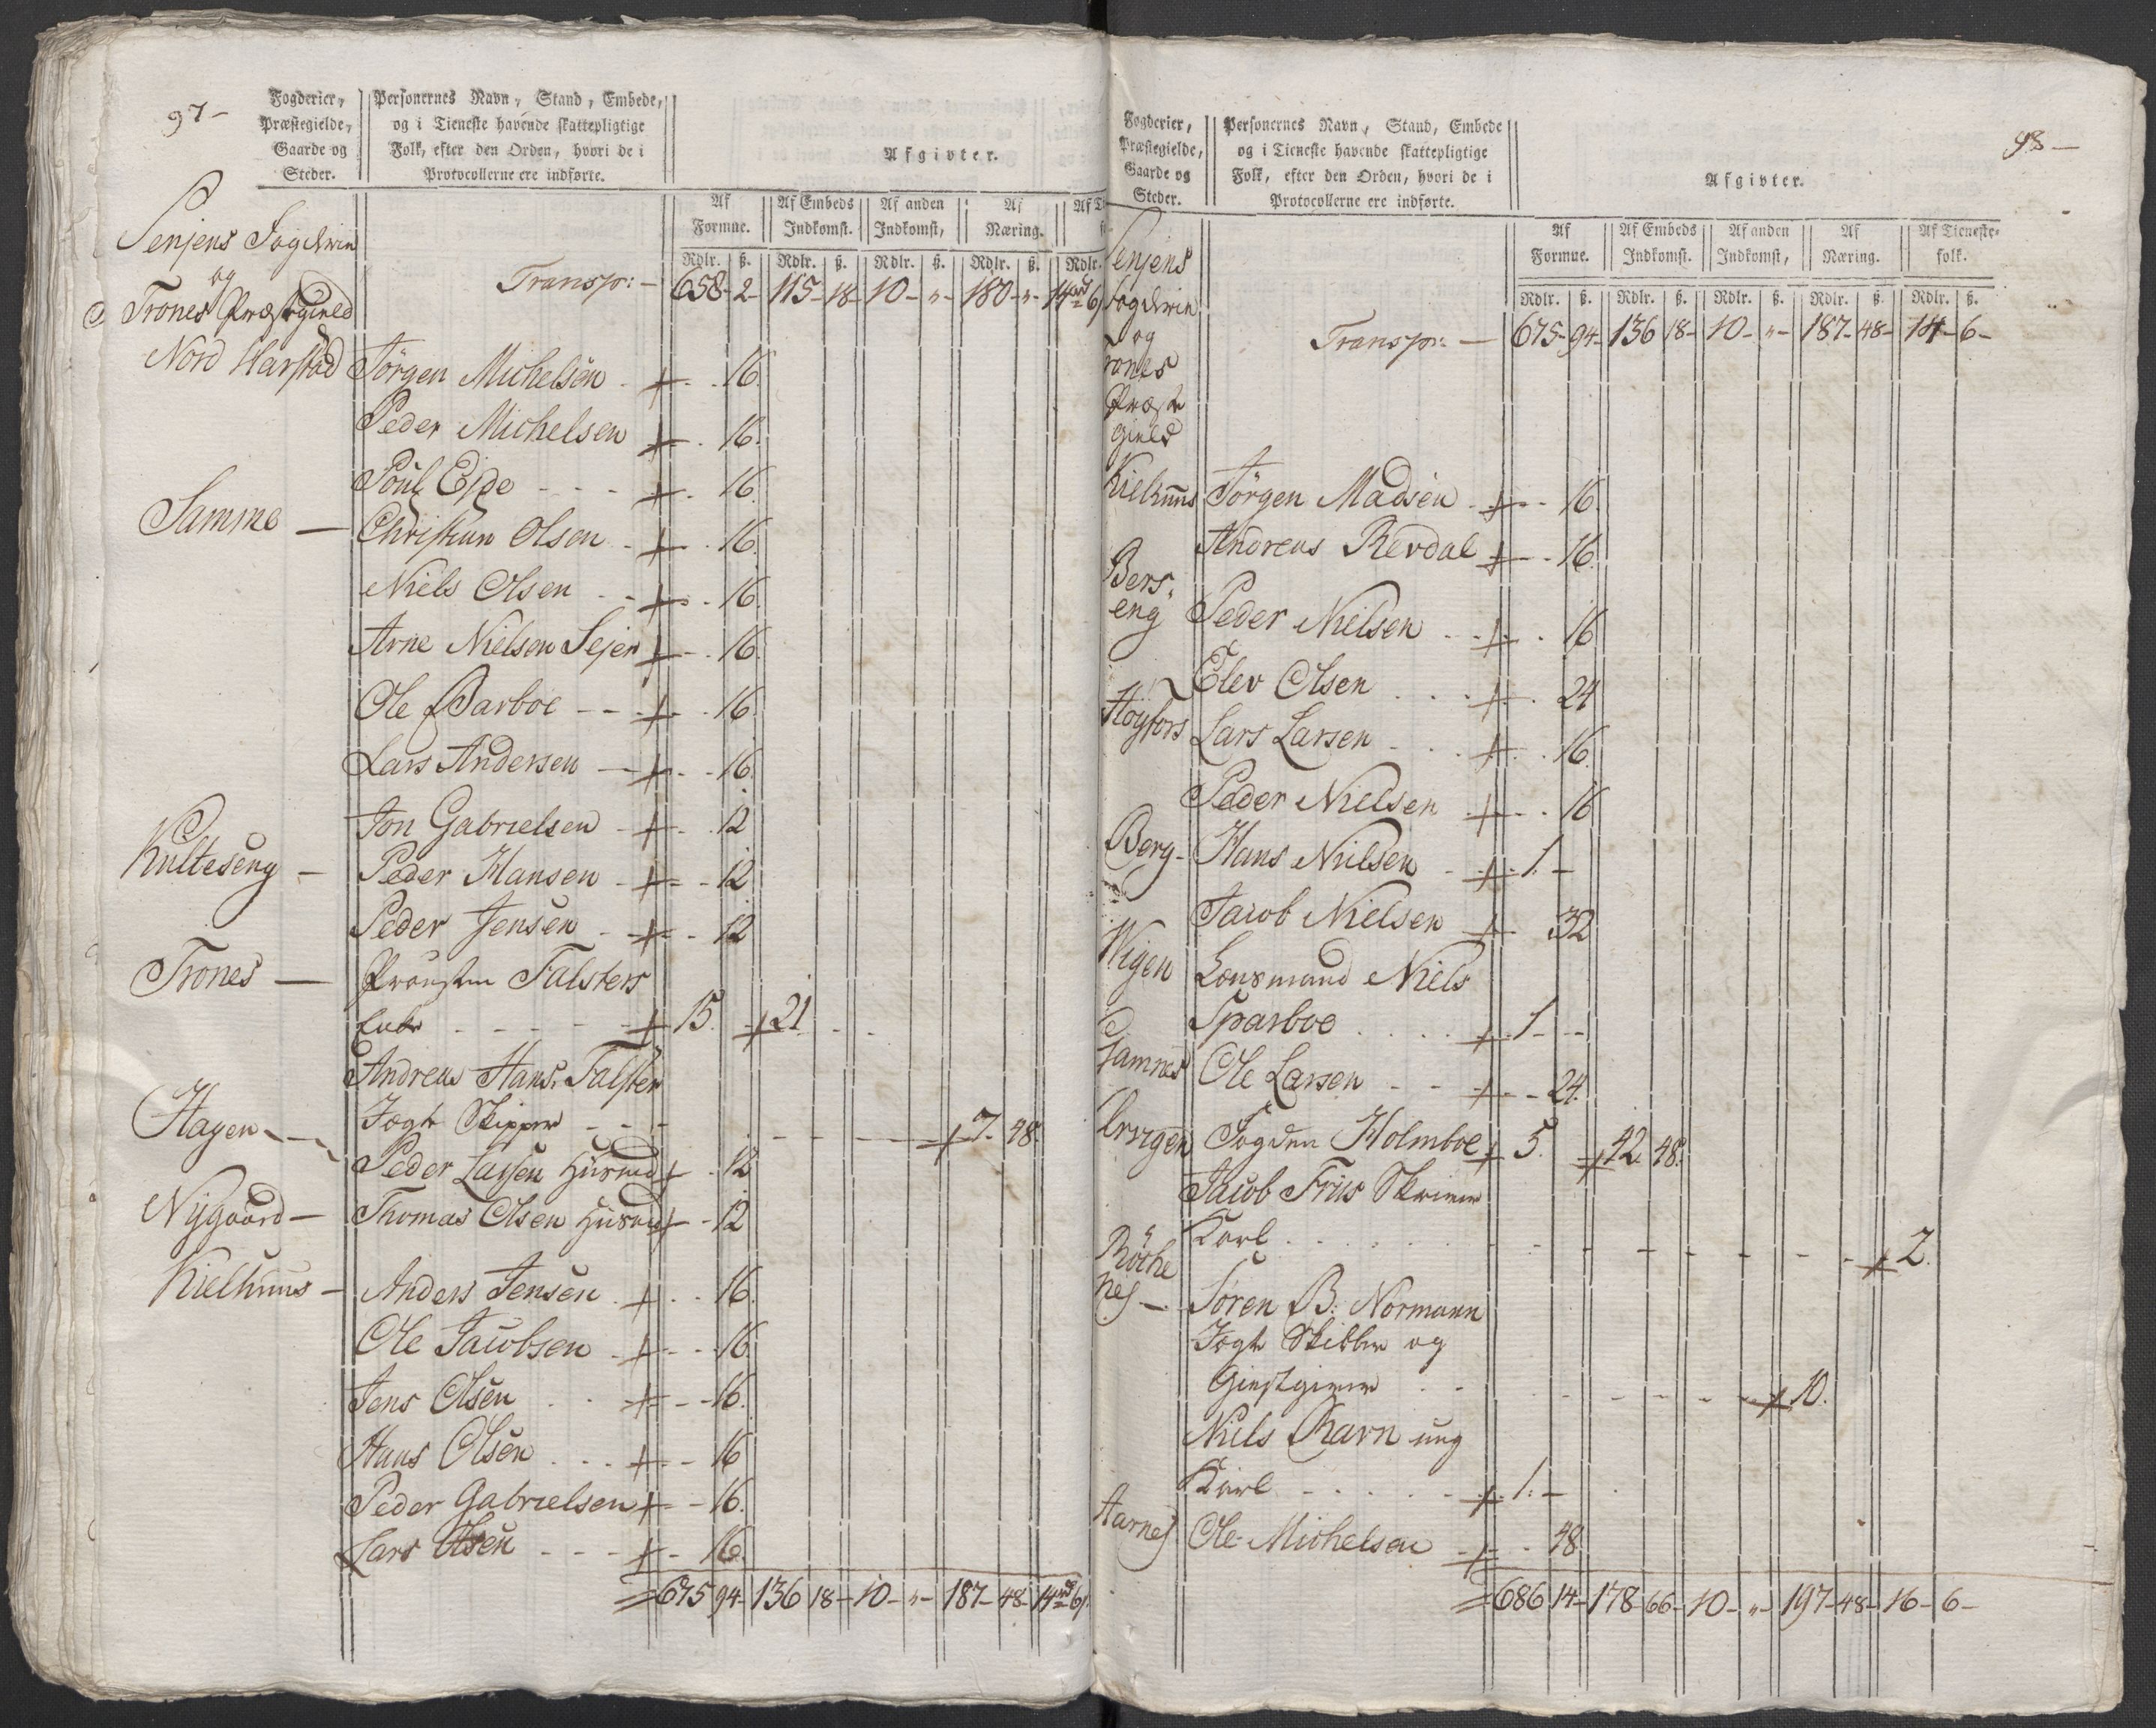 97-
Fogderier, Præstegielde, Gaarde og Steder.
Personernes Navn, Stand, Embede, og i Tieneste havende skattepligtige Folk, efter den Orden, hvori de i Protocollerne ere indførte.
Afgivter.
Af Formue. Af Embeds Indkomst. Af anden Indkomst, Af Næring. Af T
Rdlr. ß. Rdlr. ß. Rdlr. ß. Rdlr. ß. Rdlr.
Senjens Fogderie
og
Trones Præstegield
Transp: - 658- 2- 115- 18- 10- "- 180- "- 14 6
Nord Harstad Jörgen Michelsen + 16.
Peder Michelsen + 16.
Poul Eide + 16
Samme — Christian Olsen + 16.
Niels Olsen + 16.
Arne Nielsen Sejer + 16.
Ole Barboe + 16.
Lars Andersen + 16.
Jon Gabrielsen + 12
Kulteseng — Peder Hansen + 12
Peder Jensen + 12
Trones — Provsten Falsters
Enke + 15. + 21.
Andreas Hans. Falster
Jogt Skipper + 7. 48.
Hagen Peder Larsen Huusmd + 12
Nygaard — Thomas Olsen Huusmd + 12
Kielhuus — Anders Jensen + 16.
Ole Jacobsen + 16.
Jens Olsen + 16.
Hans Olsen + 16
Peder Gabrielsen + 16.
Lars Olsen + 16.
675 94- 136 18- 10- "- 187- 48- 14 6
98-
Fogderier, Præstegielde, Gaarde og Steder.
Personernes Navn, Stand, Embede og i Tieneste havende skattepligtige Folk, efter den Orden, hvori de i Protocollerne ere indførte.
Afgivter.
Af Formue. Af Embeds Indkomst. Af anden Indkomst, Af Næring. Af Tieneste-folk.
Rdlr. ß. Rdlr. ß. Rdlr. ß. Rdlr. ß. Rdlr. ß.
Senjens
Fogderie
og
rones
Præste
gield
Transp: — 675- 94- 136 18- 10- "- 187- 48- 14- 6-
Kielhuus Jörgen Madsen + 16.
Andreas Revdal + 16.
Bers-
eng Peder Nielsen + 16
Elev Olsen + 24
Höyfors Lars Larsen + 16.
Peder Nielsen + 16
Berg- Hans Nielsen + 1. -
Jacob Nielsen + 32
Wigen Lensmand Niels
Sparboe + 1. --
Samnes Ole Larsen + 24.
Fogden Holmboe + 5. + 42. 48.
Jacob Friis Skriver
Karl + 2.
Röche
nes — Sören B: Normann
Jogt Skibber og
Giestgiver + 10.
Niels Ravn ung
Karl + 1. -
Aarnes Ole Michelsen + 48.
686 14- 178- 66- 10- "- 197- 48- 16- 6-